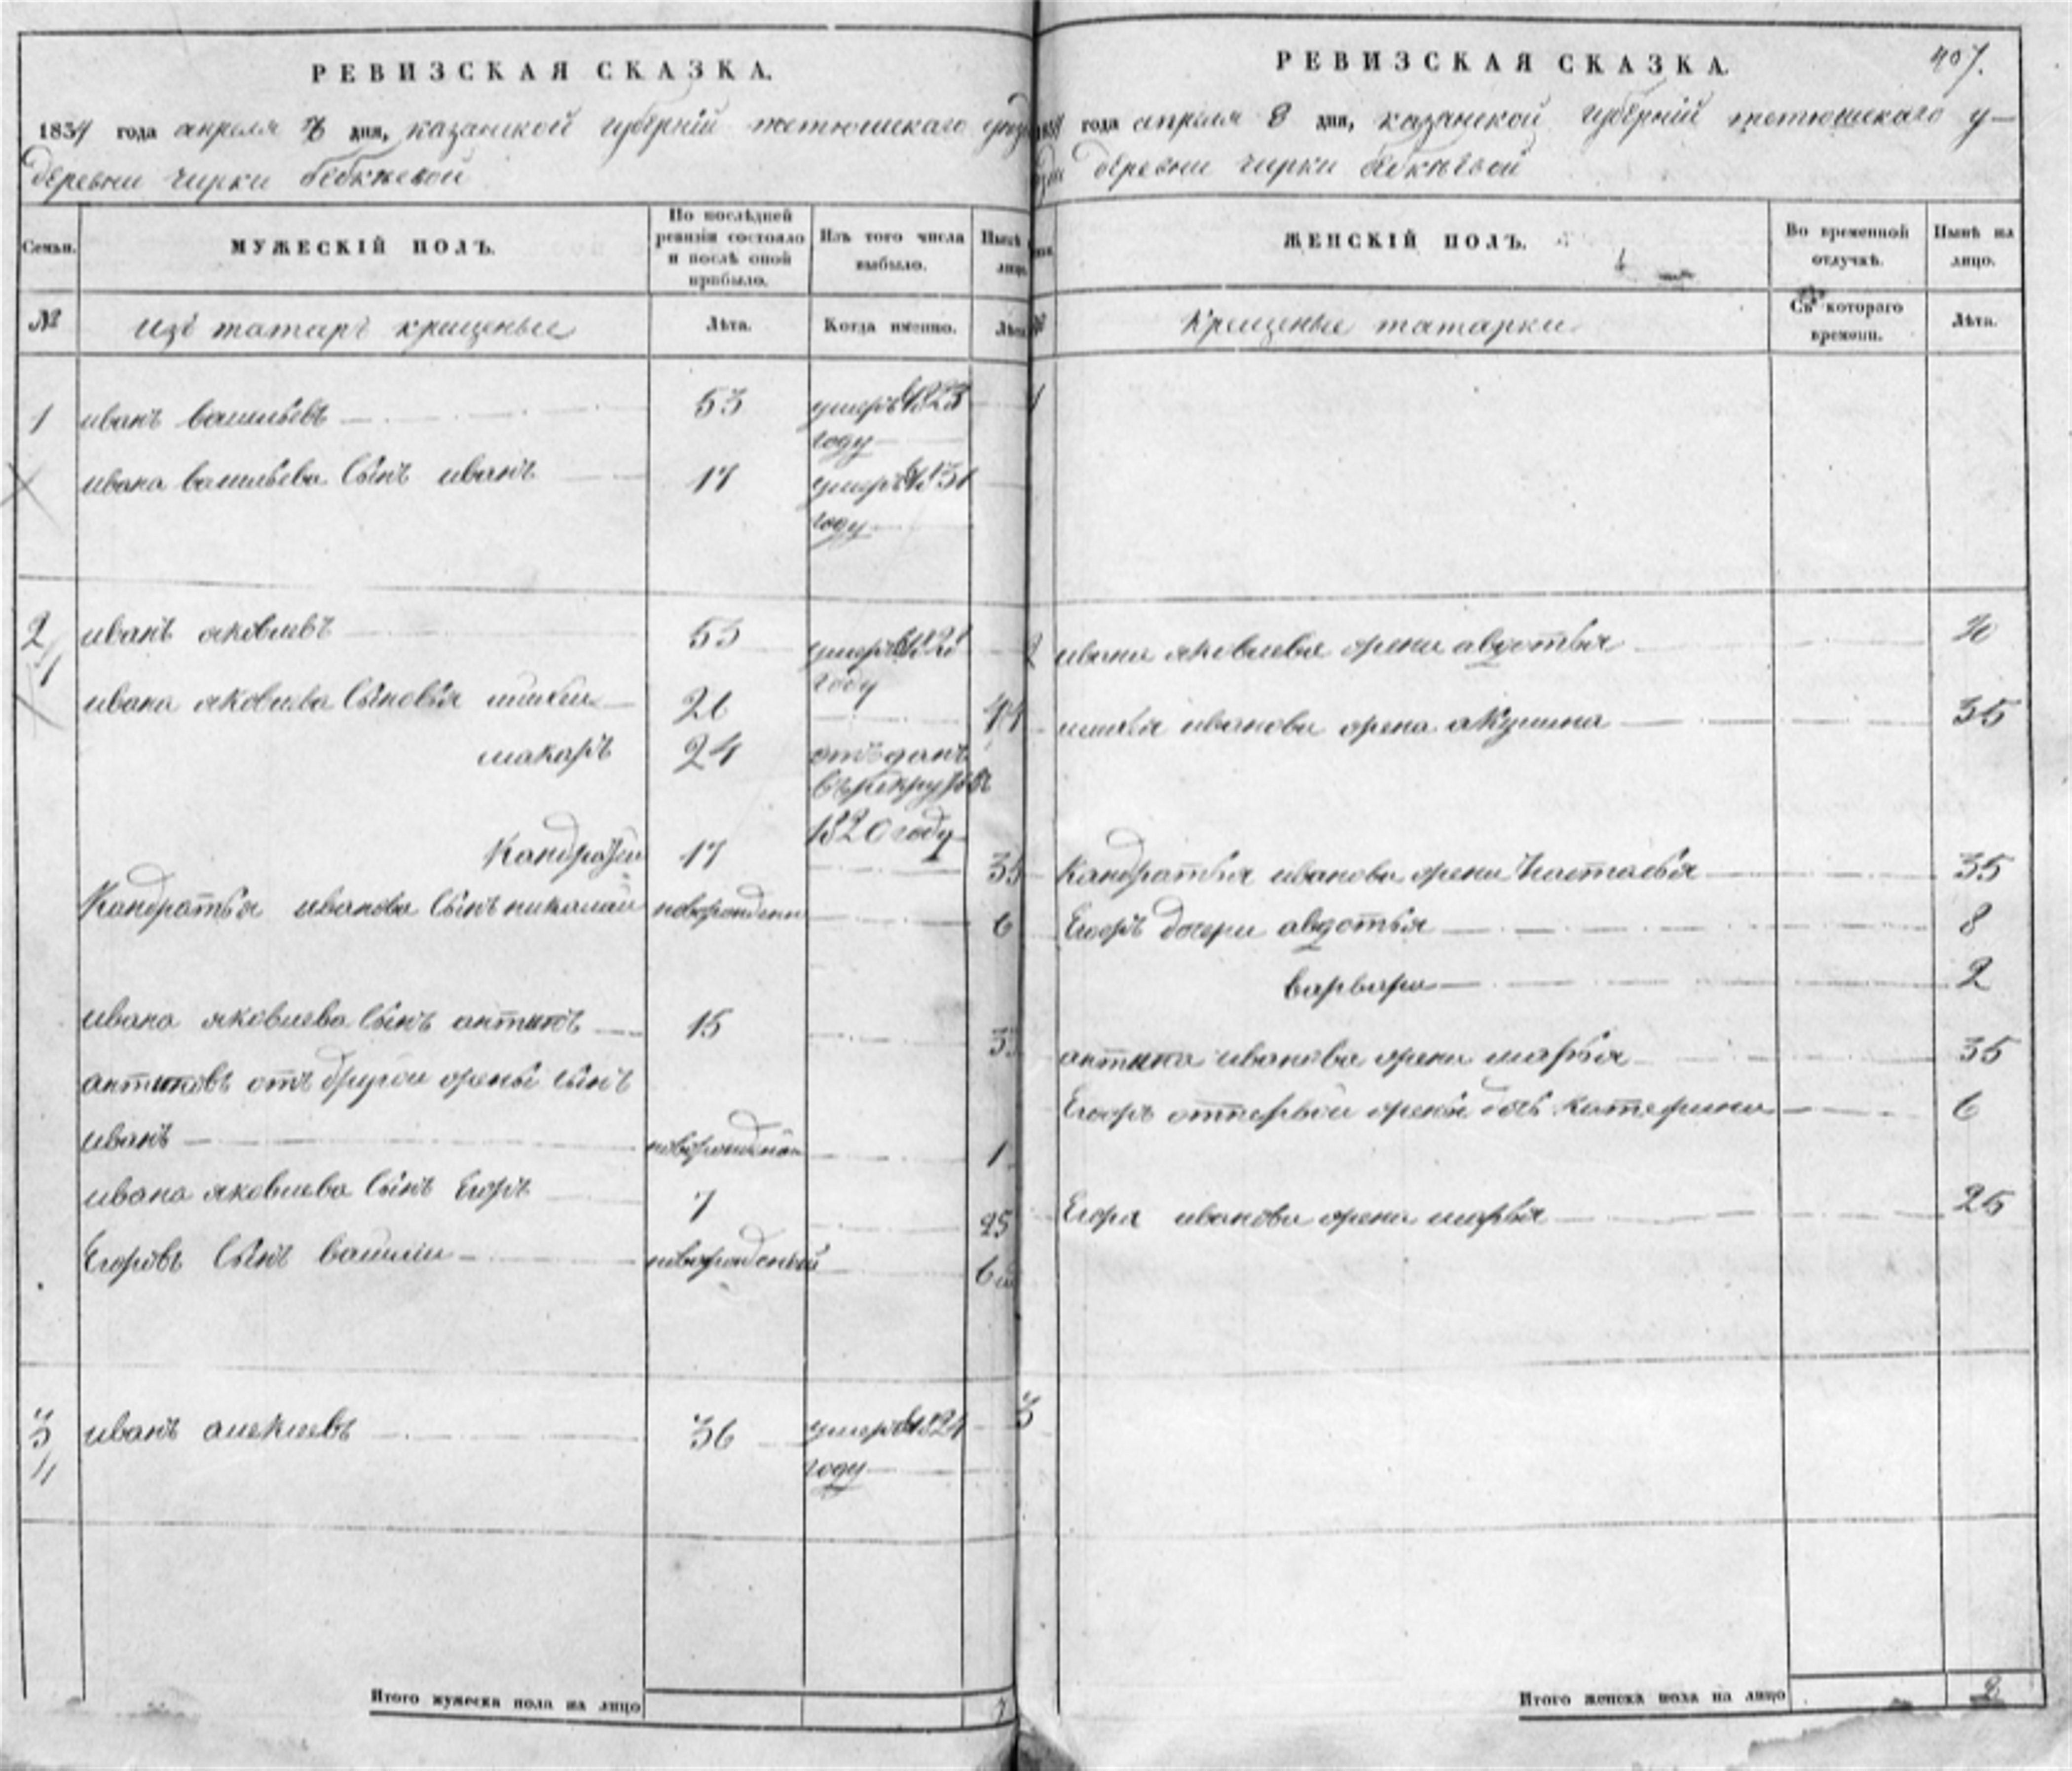 РЕВИЗСКАЯ СКАЗКА.
1834 года апреля 8 дня, казанской губерніи тетюшскаго уезда
деревни чирки бебкѣевой
Семьи.
МУЖЕСКІЙ ПОЛЪ.
По послѣдней ревизіи состояло и послѣ оной прибыло.
Изъ того числа выбыло.
Нынѣ лицо.
№
изъ татаръ крещеные
Лѣта.
Когда именно.
Лѣта
1 иванъ васильевъ 53 умеръ 1823
году
ивана васильева сынъ иванъ 17 умеръ 1831
году
2 иванъ яковлевъ 53 умеръ 1828
году
ивана яковлева сыновья 26 44
макаръ 24 отъданъ
въ рекруты
1820 году
Кандратей 17 35
Кандратья иванова сынъ николай новорожденн 6
ивана яковлева сынъ антипъ 15 33
антиповъ отъ другой жены сынъ
иванъ новорожденой 1
ивана яковлева сынъ Егоръ 7 25
Егоровъ сынъ василии новорожденый 6
3 иванъ алексеевъ 36 умеръ 1824
году
Итого мужеска пола на лицо 7
РЕВИЗСКАЯ СКАЗКА. 407.
года апреля 8 дня, казанской губерніи тетюшскаго у—
деревни чирки бебкѣевой
ЖЕНСКІЙ ПОЛЪ.
Во временной отлучкѣ.
Нынѣ на лицо.
Крещеные татарки
Съ котораго времени.
Лѣта.
1
2 ивана яковлева жена авдотья 70
иванова жена акулина 35
Кандратья иванова жена настасья 35
Егожъ дочери авдотья 8
варвара 2
антипа иванова жена марья 35
Егожъ отпервой жены дочь катерина 6
Егора иванова жена марья 25
3
Итого женска пола на лицо 8